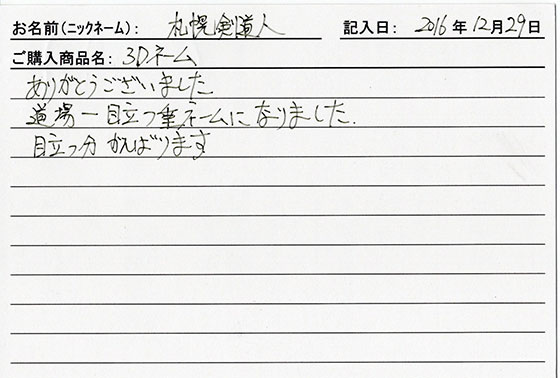 お名前(ニックネーム): 札幌剣道人 記入日: 2016年12月29日
ご購入商品名: 3Dネーム
ありがとうございました
道場一目立つ垂ネームになりました.
目立つ分がんばります